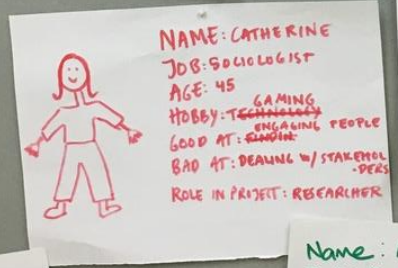 NAME: CATHERINE
JOB: SOCIOLOGIST
AGE: 45
HOBBY: TECHNOLOGY GAMING
GOOD AT: FINDIN ENGAGING PEOPLE
BAD AT: DEALING W/ STAKEHOL
-DERS
ROLE IN PROJECT: RESEARCHER
Name: